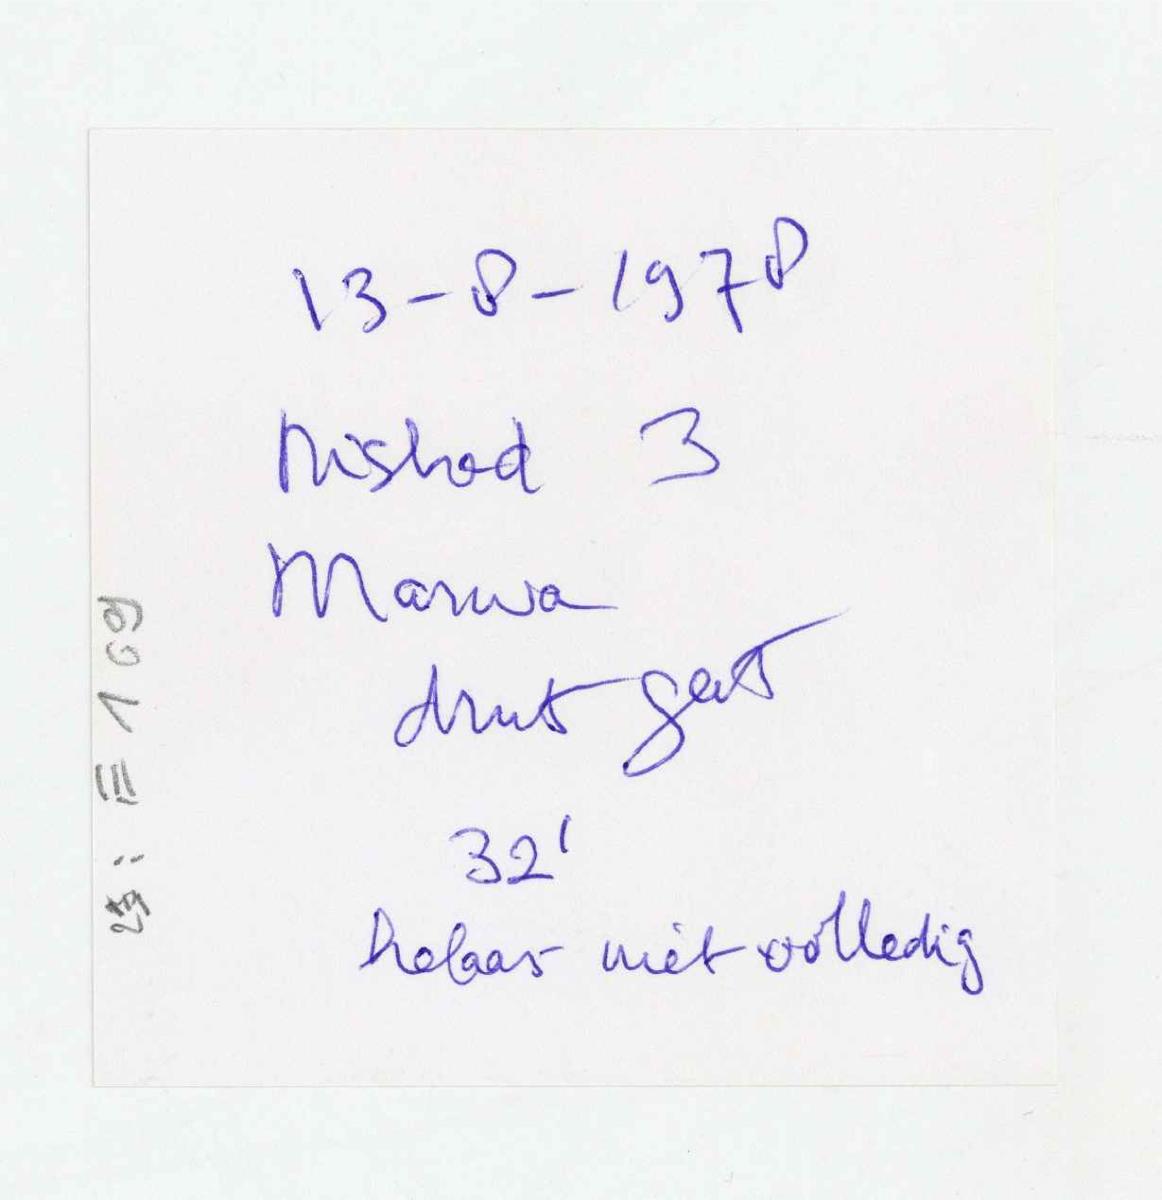 13-8-1978
Nishad 3
Marwa
drut gat
32'
helaas niet volledig
III 169